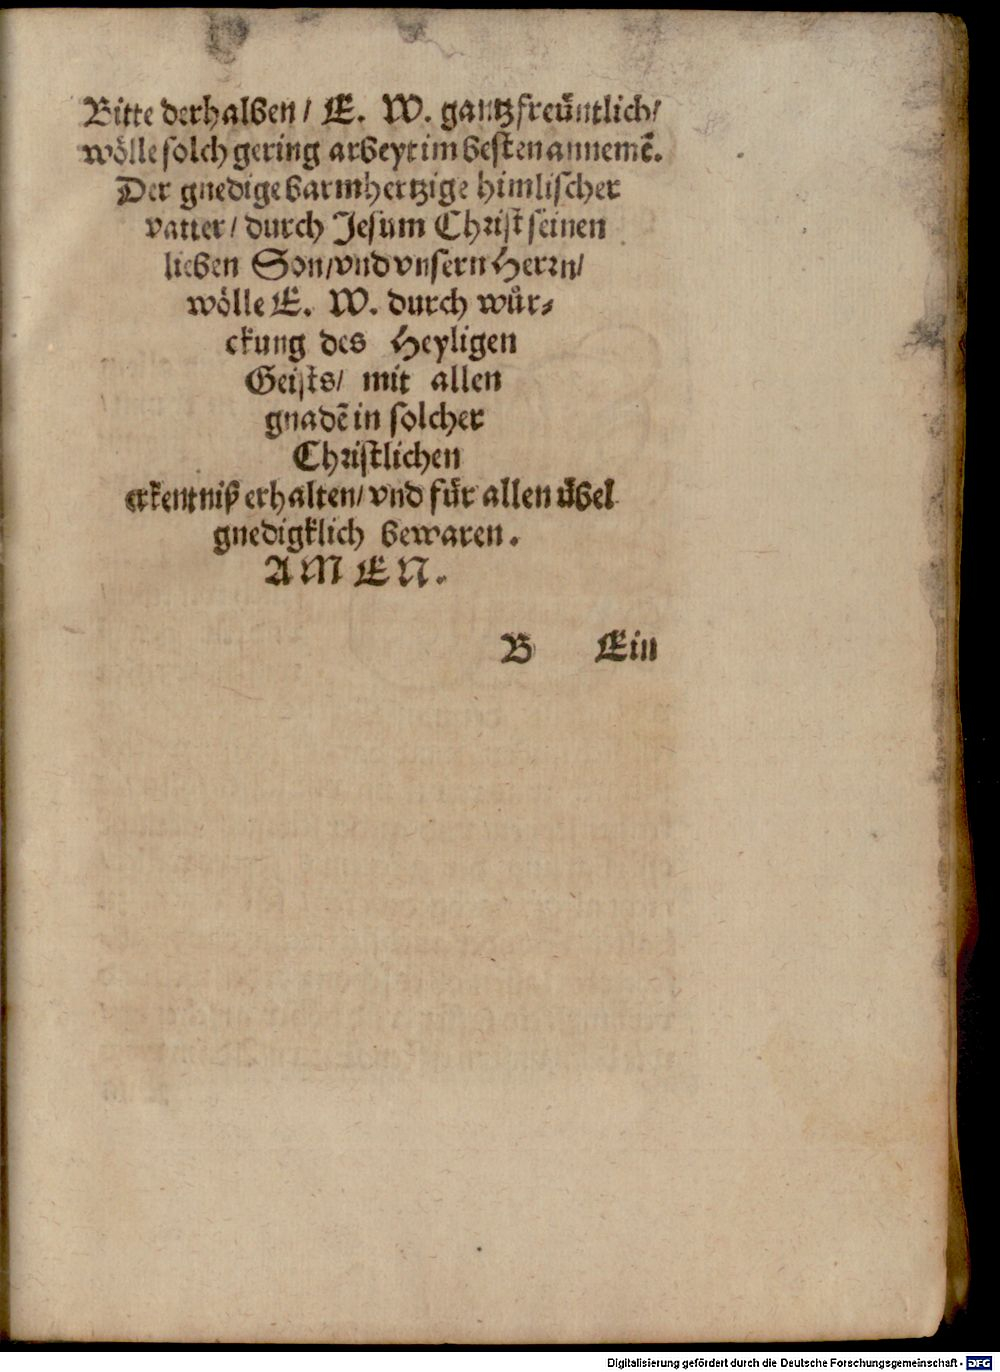 Bitte derhalben / E. W. gantz freüntlich /
wölle solch gering arbeyt im besten annemē.
Der gnedige barmhertzige himlischer
vatter / durch Jesum Christ seinen
lieben Son / vnd vnsern Herrn /
wölle E. W. durch wür⸗
ckung des Heyligen
Geists / mit allen
gnadē in solcher
Christlichen
erkentniß erhalten / vnd für allen übel
gnedigklich bewaren.
AMEN.
B Ein
Digitalisierung gefördert durch die Deutsche Forschungsgemeinschaft - DFG